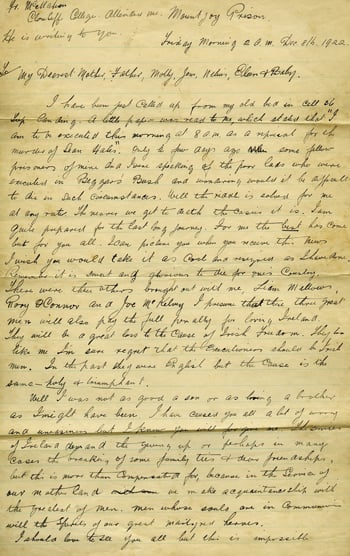 Fr. McMahon
Clonliffe College. Attended me. Mountjoy Prison.
He is writing to you.
Friday Morning 2 A.M. Dec 8th, 1922.
To My Dearest Mother, Father, Molly, Jim, Nellie, Ellen & Baby.
I have been just called up from my old bed in cell 36
Top Landing. A little paper was read to me, which stated that "I
am to be executed this morning at 8 a.m. as a reprisal for the
murder of Sean Hales". Only few days ago some fellow
prisoners of mine and I were speaking of the poor lads who were
executed in Beggars Bush and wondering would it be difficult
to die in such circumstances. Well the riddle is solved for me
at any rate. The nearer we get to death the easier it is. I am
quite prepared for the last long journey. For me the best has come
but for you all. I can picture you when you receive this news
I wish you would take it as cool and resigned as I have done
Remember it is sweet and glorious to die for one's Country.
There were three others brought out with me, Liam Mellows,
Rory O'Connor and Joe McKelvey. I presume that the three great
men will also pay the full penalty for loving Ireland.
They will be a great loss to the cause of Irish Freedom. They too
like me I'm sure regret that the Executioners should be Irish
men. In the past they were English but the cause is the
same - holy & triumphant.
Well I was not as good a son or as loving a brother
as I might have been. I have caused you all a lot of worry
and uneasiness but I know you will forgive me. The cause
of Ireland demand the giving up or perhaps in many
cases the breaking of some family ties & dear friendships,
but this is more than compensated for, because in the service of
our mother land we make acquaintanceship with
the greatest of men. men whose souls are in Communion
with the Spirits of our great martyred heroes.
I should love to see you all but this is impossible